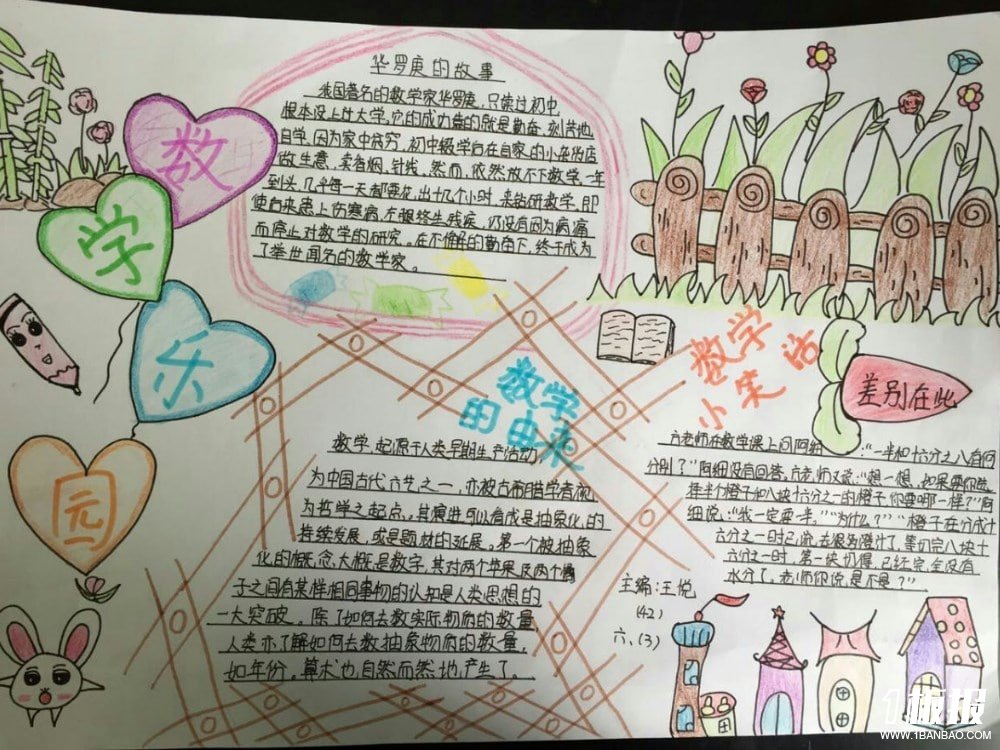 数
学
乐
园
华罗庚的故事
我国著名的数学家华罗庚，只读过初中，
根本没上过大学，它的成功靠的就是勤奋，刻苦地
自学。因为家中贫穷，初中辍学后在自家的小杂货店
做生意，卖香烟、针线，然而，依然放不下数学，一年
到头，几乎每一天都要花出十几个小时，来钻研数学，即
使自来患上伤寒病，左腿终生残疾，仍没有因为病痛
而停止对数学的研究，在不懈的勤奋下，终于成为
了举世闻名的数学家。
数学
的由来
数学，起源于人类早期生产活动
为中国古代六艺之一，亦被古希腊学者视
为哲学之起点。其演进可以看成是抽象化的
持续发展，或是题材的延展。第一个被抽象
化的概念，大概是数字，其对两个苹果及两个橘
子之间有某样相同事物的认知是人类思想的
一大突破。除了如何去数实际物质的数量，
人类亦了解如何去数抽象物质的数量，
如年份。算术也自然而然地产生了。
数学
小笑话
差别在此
方老师在数学课上问阿细："一半和十六分之八有何
分别？"阿细没有回答，方老师又说："想一想，如果要你选
择半个橙子和八块十六分之一的橙子你要哪一样？"阿
细说："我一定要一半。""为什么？""橙子在分成十
六分之一时已流去很多橙汁了，等切完八块十
六分之一时，
水分了，老师你说是不是？"
主编：王悦
(42)
六、(3)
1板报
WWW.1BANBAO.COM